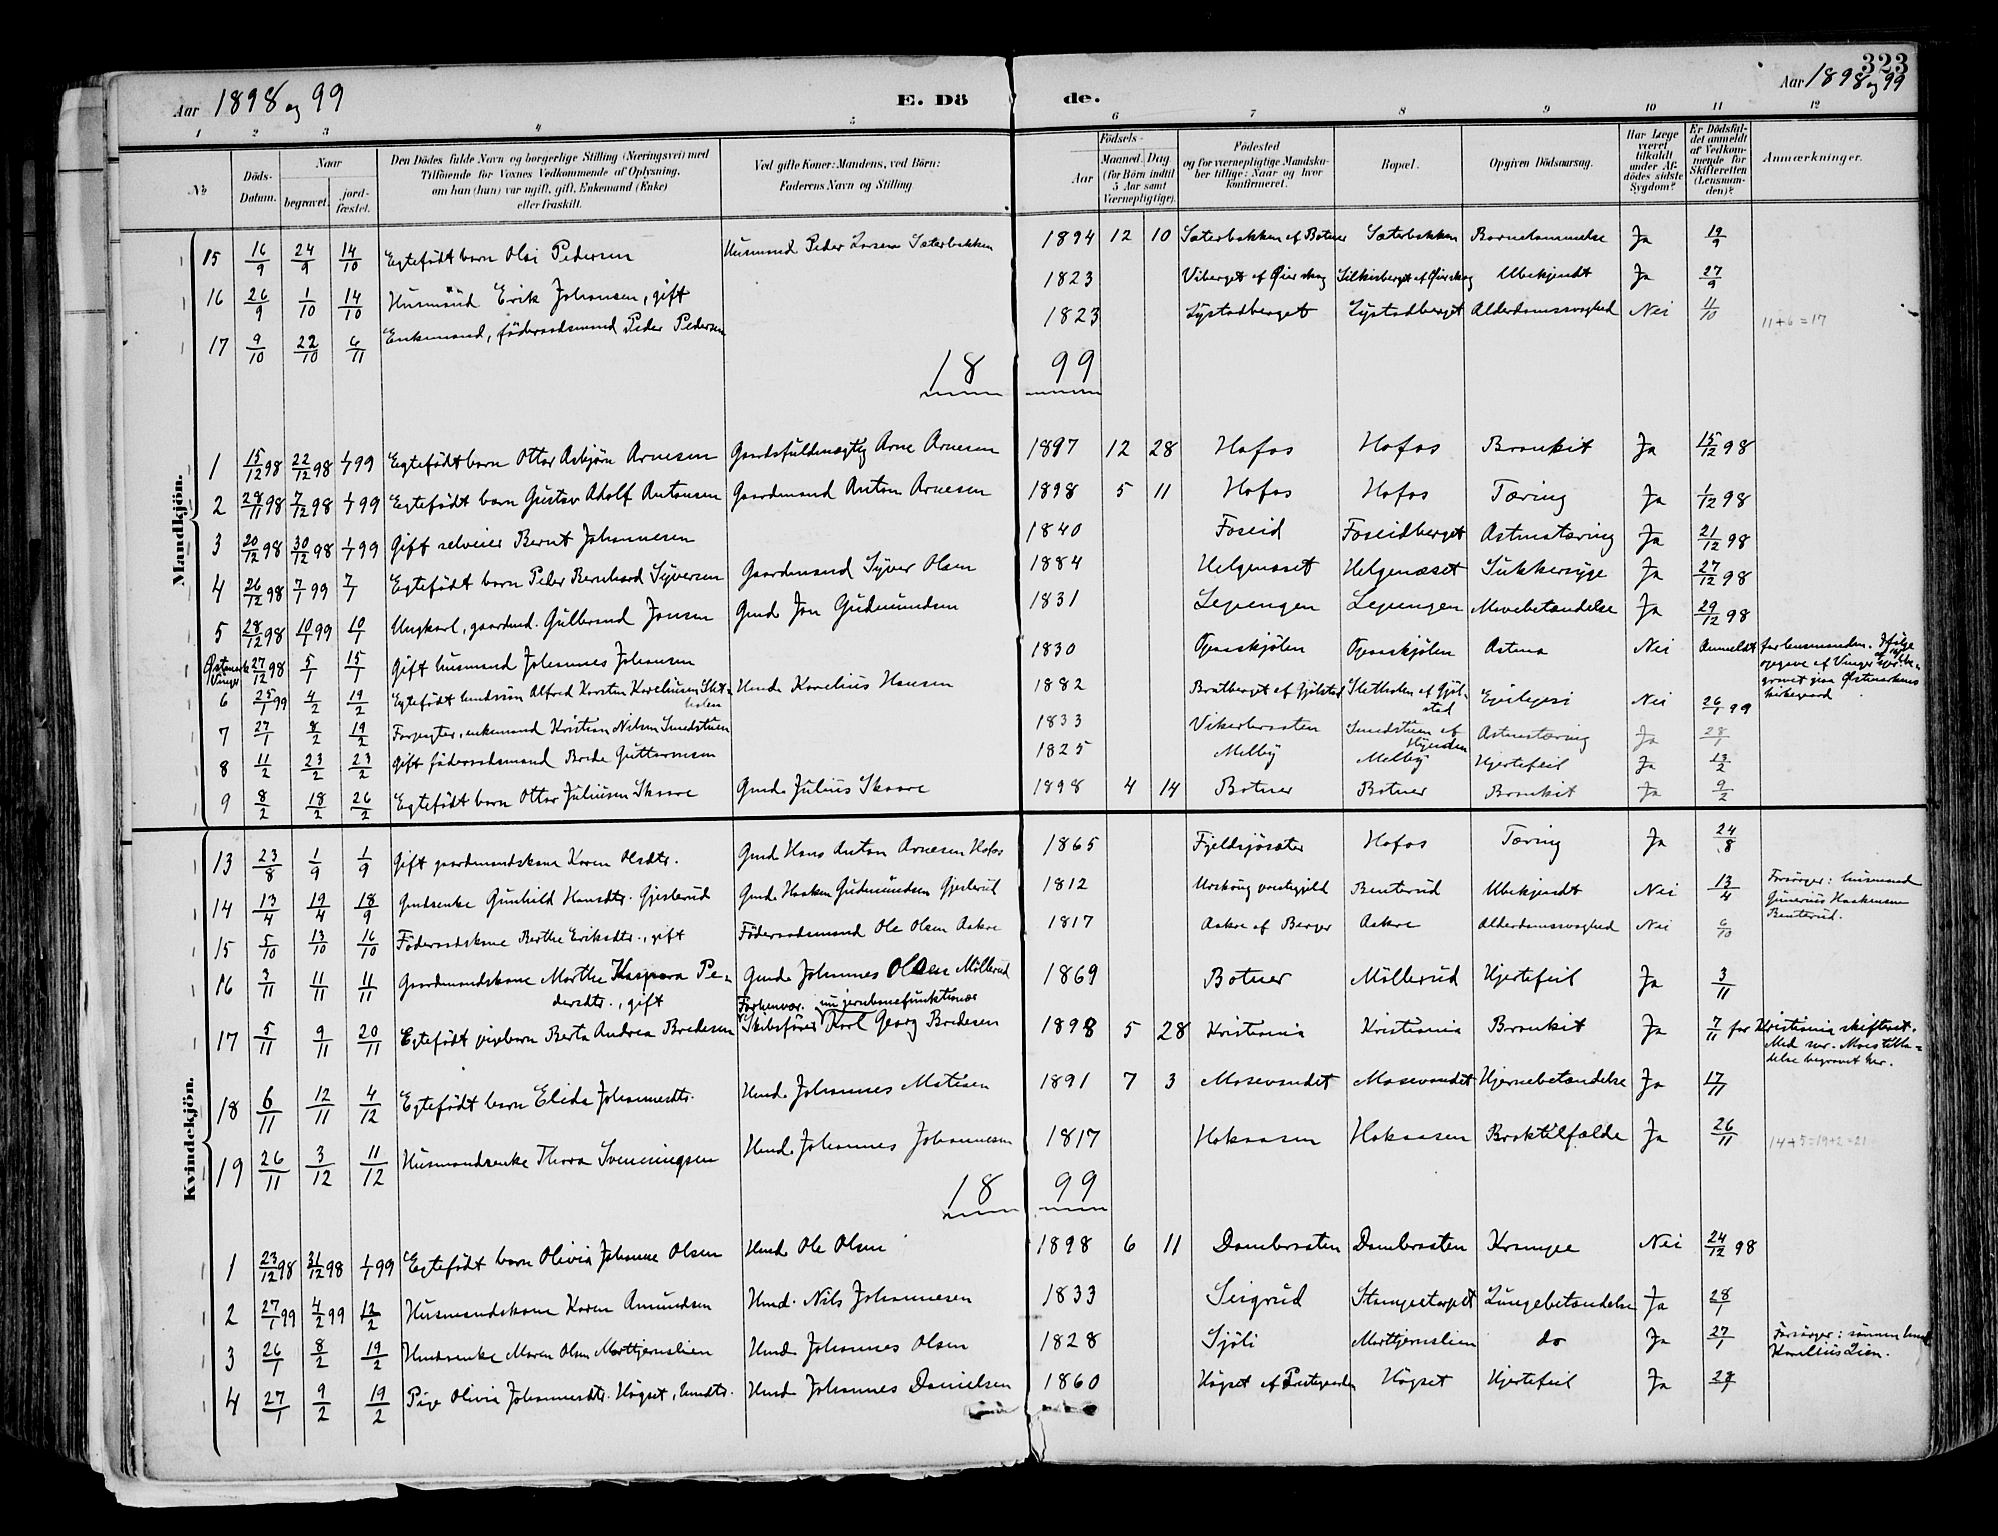 323
Aar 1898 og 99 E. Dö de. Aar 1898 og 99
1 2 3 4 5 6 7 8 9 10 11 12
No
Döds-Datum.
Naar
begravet.
jord-fæstet.
Den Dödes fulde Navn og borgerlige Stilling (Næringsvei) med
Tilföiende for Voxnes Vedkommende af Oplysning,
om han (hun) var ugift, gift, Enkemand (Enke)
eller fraskilt.
Ved gifte Koner: Mandens, ved Börn:
Faderens Navn og Stilling.
Födsels-
Aar
Maaned. Dag.
(for Börn indtil
5 Aar samt
Værnepligtige).
Födested
og for værnepligtige Mandska-
ber tillige: Naar og hvor
konfirmeret.
Bopæl.
Opgiven Dödsaarsag.
Har Læge
været
tilkaldt
under Af-
dödes sidste
Sygdom?
Er Dödsfal-
det anmeldt
af Vedkom-
mende for
Skifteretten
(Lensman-
den)?
Anmærkninger.
Mandkjön.
15 16/9 24/9 14/10 Egtefödt barn Olai Pedersen Husmand Peder Larsen Sæterbakken 1894 12 10 Sæterbakken af Botner Sæterbakken Barnekammelse Ja 19/9
16 26/9 1/10 14/10 Husmand Erik Johansen, gift 1823 Viberget af Öierskog Silkisberget af Öierskog Ubekjendt Ja 27/9
17 9/10 22/10 6/11 Enkemand, föderaadsmand Peder Pedersen 1823 Lystadberget Lystadberget Alderdomssvaghed Nei 11/10 11+6=17
18 99
1 15/12 98 22/12 98 1/1 99 Egtefödt barn Ottar Asbjörn Arnesen Gaardsfuldmægtig Arne Arnesen 1897 12 28 Hofos Hofos Bronkit Ja 15/12 98
2 28/11 98 7/12 98 1/1 99 Egtefödt barn Gustav Adolf Antonsen Gaardmand Anton Arnesen 1898 5 11 Hofos Hofos Tæring Ja 1/12 98
3 20/12 98 30/12 98 1/1 99 Gift selveier Bernt Johannesen 1840 Foseid Foseidberget Astmatæring Ja 21/12 98
4 26/12 98 7/1 99 7/1 Egtefödt barn Peder Bernhard Syversen Gaardmand Syver Olsen 1884 Helgenæset Helgenæset Sukkersyge Ja 27/12 98
5 28/12 98 10/1 99 10/1 Ungkarl, gaardmd. Gulbrand Jonsen Gmd. Jon Gudmundsen 1831 Lepengen Lepengen Mavebetændelse Ja 29/12 98
Östmark Vinger 27/12 98 5/1 15/1 Gift husmand Johannes Johansen 1830 Opaaskjölen Opaaskjölen Astma Nei Anmeldt for lensmanden. Ifölge
opgave af Vinger spr. be-
gravet paa Östmarkens
kirkegaard
6 25/1 99 4/2 19/2 Egtefödt hmdssön Alfred Karsten Korneliussen Slet-
holen Hmd. Kornelius Hansen 1882 Bratberget af Gjölstad Sletholen af Gjöl-
stad Epilepsi Nei 26/1 99
7 27/1 8/2 19/2 Forpagter, enkemand Kristian Nilsen Smedstuen 1833 Vikerbraaten Smedstuen af
Hynden Astmatæring Ja 28/1
8 11/2 23/2 23/2 Gift föderaadsmand Brede Guttormsen 1825 Melby Melby Hjertefeil Ja 13/2
9 8/2 18/2 26/2 Egtefödt barn Ottar Juliusen Skaare Gmd. Julius Skaare 1898 4 14 Botner Botner Bronkit Ja 9/2
Kvindekjön.
13 23/8 1/9 1/9 Gift gaardmandskone Karen Olsdtr. Gmd Hans Anton Arnesen Hofos 1865 Fjeldsjösæter Hofos Tæring Ja 24/8
14 13/4 19/4 18/9 Gmdsenke Gunhild Hansdtr. Gjesterud Gmd. Haaken Gudmundsen Gjesterud 1812 Morskog prestegjeld Benterud Ubekjendt Nei 13/4 Forsörger: husmand
Gunerius Haakensen
Benterud.
15 5/10 13/10 16/10 Föderaadskone Berthe Eriksdtr., gift Föderaadsmand Ole Olsen Aakre 1817 Aakre af Berger Aakre Alderdomssvaghed Nei 6/10
16 3/11 11/11 11/11 Gaardmandskone Marthe Kaspara Pe-
dersdtr., gift Gmd. Johannes Olsen Möllerud 1869 Botner Möllerud Hjertefeil Ja 3/11
17 5/11 9/11 20/11 Egtefödt pigebarn Berta Andrea Bredesen Forhenvær. nu jernbanefunktionær
Skibsförer Karl Georg Bredesen 1898 5 28 Kristiania Kristiania Bronkit Ja 7/11 for Kristiania skifteret.
Med spr. Moes tilla-
delse begravet her.
18 6/11 12/11 4/12 Egtefödt barn Elida Johannesdtr. Hmd. Johannes Matisen 1891 7 3 Mosevandet Mosevandet Hjernebetændelse Ja 17/11
19 26/11 3/12 11/12 Husmandsenke Thora Svenningsen Hmd. Johannes Johannesen 1817 Hokaasen Hokaasen Braktilfælde Ja 26/11 14+5=19+2=21
18 99
1 23/12 98 31/12 98 1/1 99 Egtefödt barn Olivia Johanne Olsen Hmd. Ole Olsen 1898 6 11 Dambraaten Dambraaten Krampe Nei 24/12 98
2 27/1 99 4/2 99 12/2 Husmandskone Karen Amundsen Hmd. Nils Johannesen 1833 Seigrud Stampetorpet Lungebetændelse Ja 28/1
3 26/1 8/2 19/2 Hmdsenke Maren Olsen Morttjernslien Hmd. Johannes Olsen 1828 Sjöli Morttjernslien do Ja 27/1 Forsörger: sönnen hmd
Kornelius Lien.
4 27/1 9/2 19/2 Pige Olivia Johannesdtr. Högset, hmdtr. Hmd Johannes Danielsen 1860 Högset af Prestegaarden Högset Hjertefeil Ja 28/1